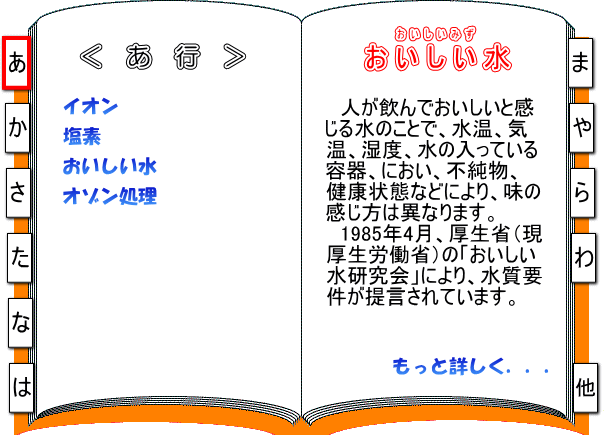 あ
か
さ
た
な
は
＜ あ 行 ＞
イオン
塩素
おいしい水
オゾン処理
おいしいみず
おいしい水
人が飲んでおいしいと感
じる水のことで、水温、気
温、湿度、水の入っている
容器、におい、不純物、
健康状態などにより、味の
感じ方は異なります。
1985年4月、厚生省（現
厚生労働省）の「おいしい
水研究会」により、水質要
件が提言されています。
もっと詳しく．．．
ま
や
ら
わ
他